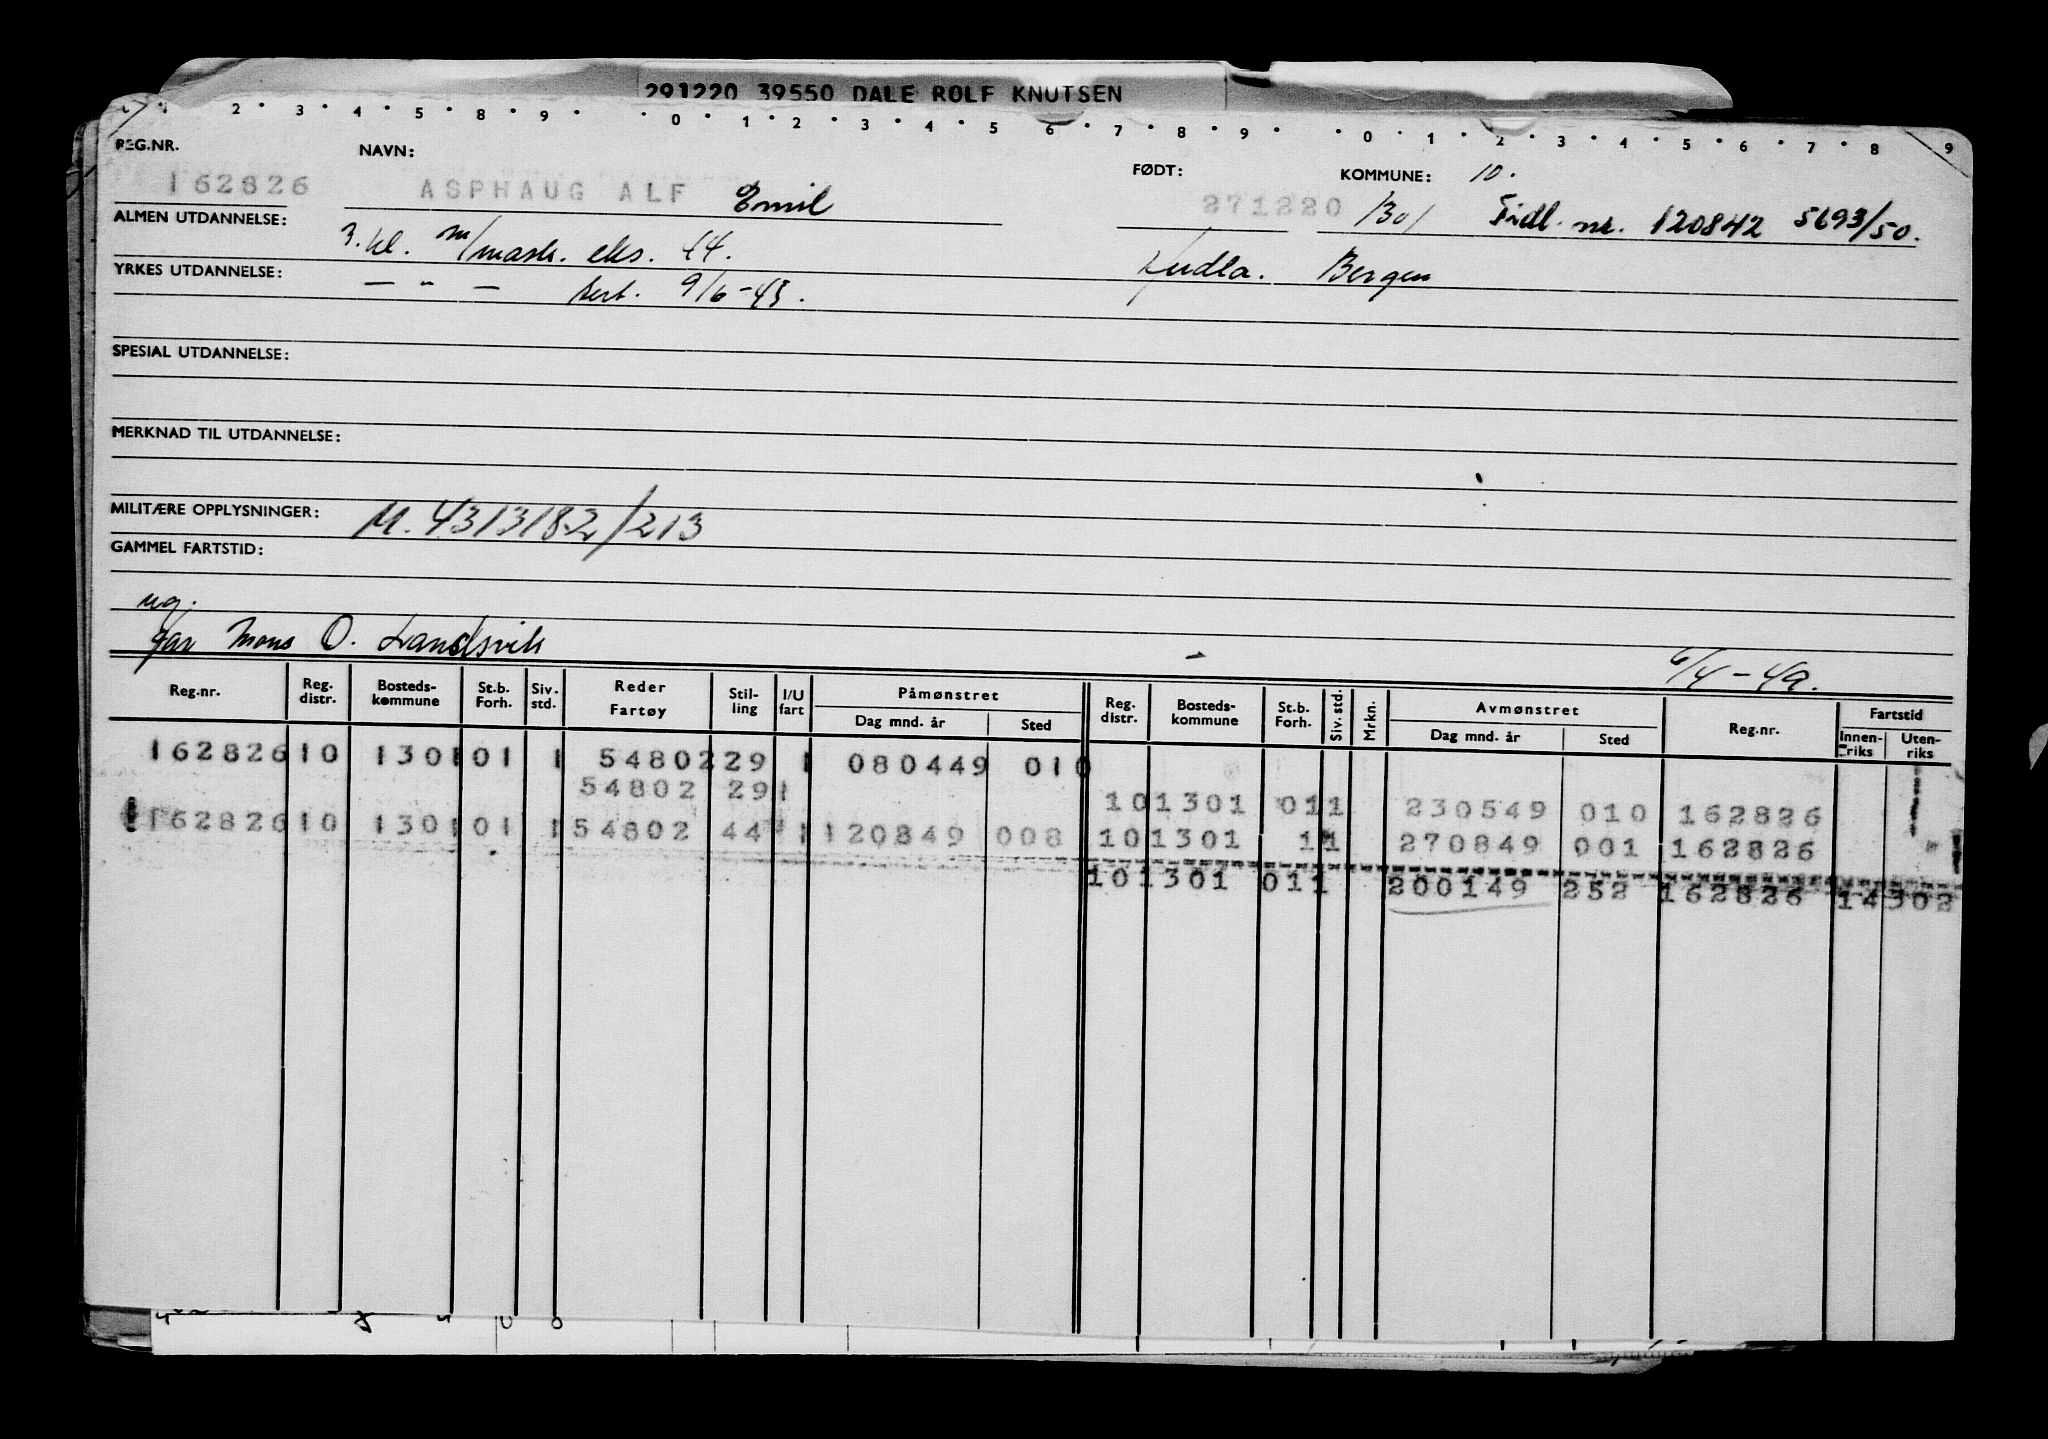 291220 39550 DALE ROLF KNUTSEN
2 3 4 5 8 9 0 1 2 3 4 5 6 7 8 9 0 1 2 3 4 5 6 7 8 9
REG.NR. NAVN: FØDT: KOMMUNE: 10.
162826 ASPHAUG ALF Emil 271220 1301 Tidl. nr. 120842 5693/50.
ALMEN UTDANNELSE: 3. kl. m/mask. eks. 44. Bergen
YRKES UTDANNELSE: — " — sert. 9/6-43.
SPESIAL UTDANNELSE:
MERKNAD TIL UTDANNELSE:
MILITÆRE OPPLYSNINGER: M. 4313182/213
GAMMEL FARTSTID:
ug.
far Mons O. Landsvik 6/4-49.
Reg.nr. Reg. distr. Bosteds-kommune St.b. Forh. Siv. std. Reder Fartøy Stil-ling I/U fart Påmønstret Dag mnd. år Sted Reg. distr. Bosteds-kommune St.b. Forh. Siv. std. Mrkn. Avmønstret Dag mnd. år Sted Reg.nr. Fartstid Innen-riks Uten-riks
162826 10 1301 01 1 54802 29 1 080449 010
54802 29 1 10 1301 01 1 230549 010 162826
162826 10 1301 01 1 54802 44 1 120849 008 10 1301 1 1 270849 001 162826
10 1301 01 1 200149 252 162826 14302